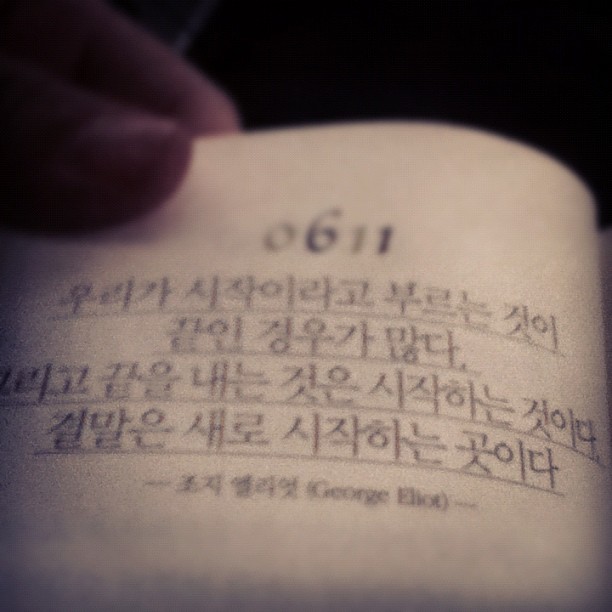 0611
우리가 시작이라고 부르는 것이
끝인 경우가 많다.
그리고 끝을 내는 것은 시작하는 것이다.
결말은 새로 시작하는 곳이다
— 조지 엘리엇 (George Eliot) —